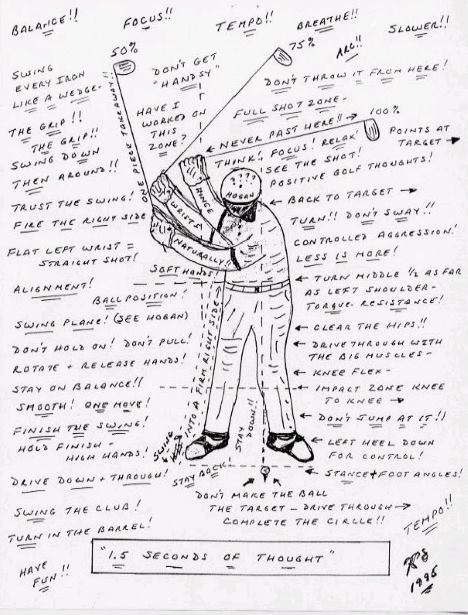 BALANCE!! FOCUS!! TEMPO!! BREATHE!! SLOWER!!
50%
75%
ARG!!
SWING
EVERY IRON
LIKE A WEDGE.
THE GRIP!!
THE GRIP!!
SWING DOWN
THEN AROUND!!
TRUST THE SWING!
FIRE THE RIGHT SIDE
FLAT LEFT WRIST =
STRAIGHT SHOT!
ALIGNMENT!
BALL POSITION!
SWING PLANE! (SEE HOGAN)
DON'T HOLD ON! DON'T PULL!
ROTATE + RELEASE HANDS!
STAY ON BALANCE!!
SMOOTH! ONE MOVE!
FINISH THE SWING!
HOLD FINISH -
HIGH HANDS!
DRIVE DOWN + THROUGH!
SWING THE CLUB!
TURN IN THE BARREL!
HAVE
FUN!!
ONE PIECE TAKEAWAY!!
DON'T GET
"HANDSY"
HAVE I
WORKED ON
THIS
ZONE?
DON'T THROW IT FROM HERE!
FULL SHOT ZONE -
100%
NEVER PAST HERE!!
THINK! FOCUS! RELAX!
SEE THE SHOT!
POSITIVE GOLF THOUGHTS!
POINTS AT
TARGET
HINGE
WRISTS
NATURALLY!
SOFT HANDS!
????
HOGAN
BACK TO TARGET
TURN!! DON'T SWAY!!
CONTROLLED AGGRESSION!
LESS IS MORE!
TURN MIDDLE 1/2 AS FAR
AS LEFT SHOULDER -
TORQUE - RESISTANCE!
CLEAR THE HIPS!!
DRIVE THROUGH WITH
THE BIG MUSCLES -
KNEE FLEX -
IMPACT ZONE KNEE
TO KNEE
DON'T JUMP AT IT!!
LEFT HEEL DOWN
FOR CONTROL!
STANCE + FOOT ANGLES!
SWING
INTO A FIRM RIGHT SIDE
STAY DOWN!!
STAY BACK!
DON'T MAKE THE BALL
THE TARGET - DRIVE THROUGH
COMPLETE THE CIRCLE!!
TEMPO!!
"1.5 SECONDS OF THOUGHT"
1995